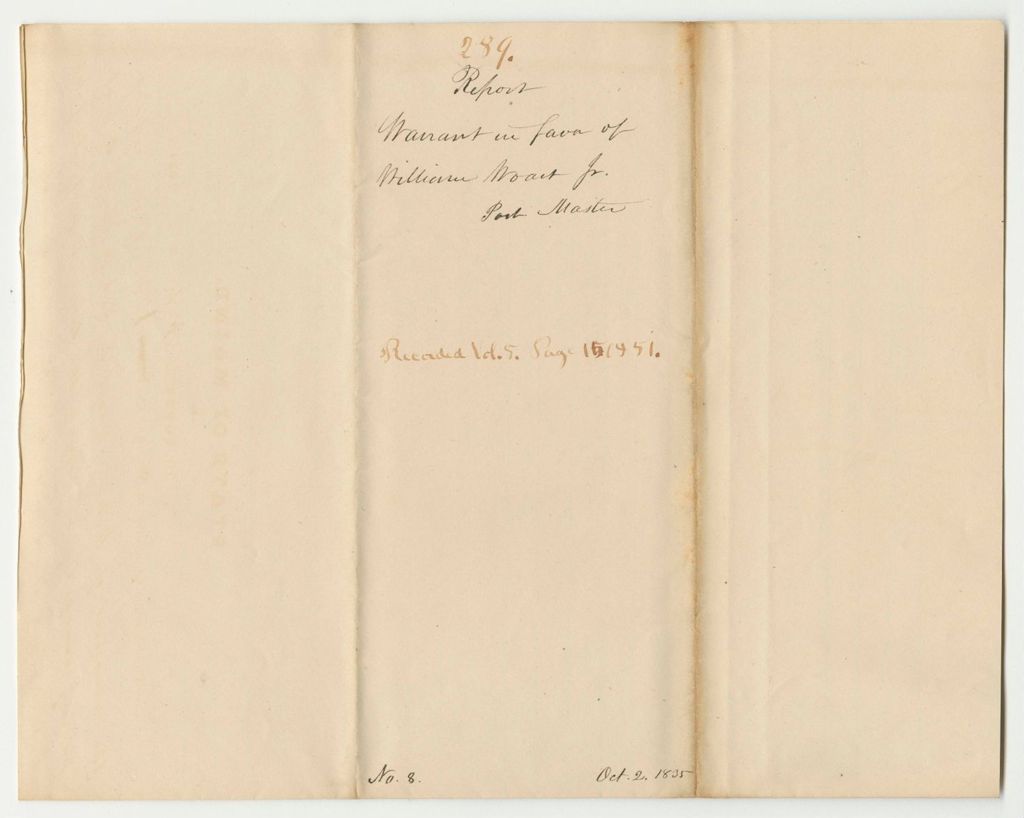 289.
Report
Warrant in favor of
William Woart Jr.
Post Master
Recorded Vol. 5. Page
No. 8. Oct. 2. 1835